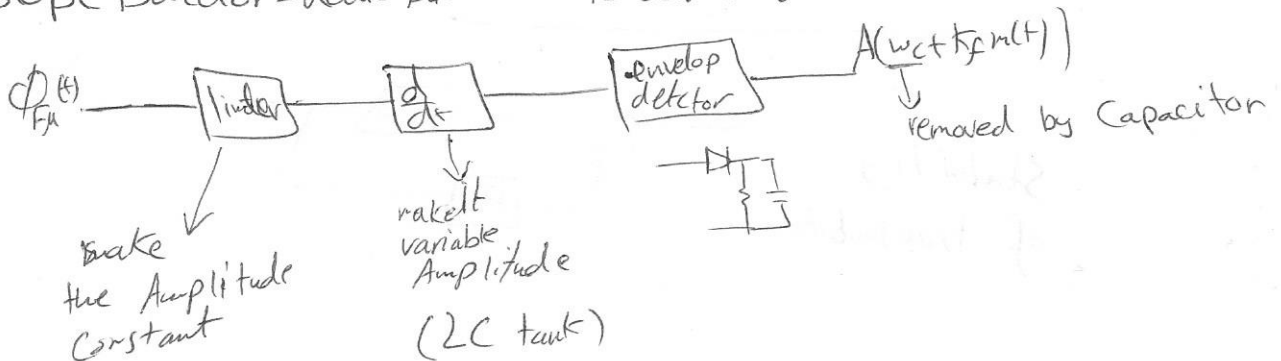 Φ_FM(t)
limter
d/dt
envelop
detctor
A(wc+Kf m(t))
removed by Capacitor
make
the Amplitude
Constant
makeIt
variable
Amplitude
(LC tank)